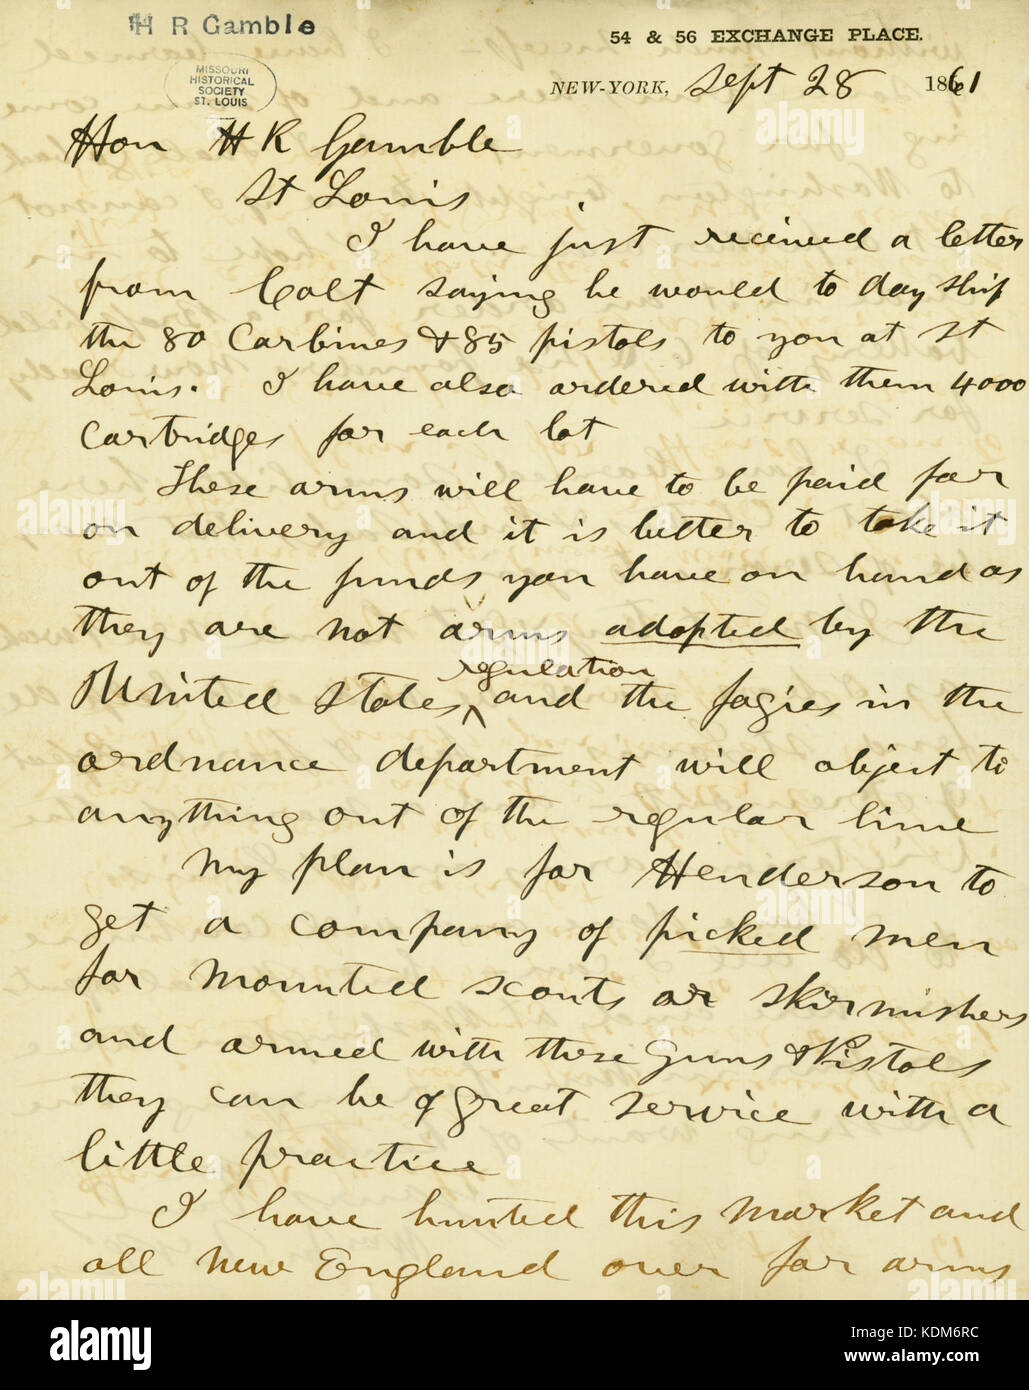 H R Gamble
MISSOURI
HISTORICAL
SOCIETY
ST. LOUIS
54 & 56 EXCHANGE PLACE.
NEW-YORK, Sept 28 1861
Hon H R Gamble
St Louis
I have just received a letter
from Colt saying he would to day ship
the 80 Carbines & 85 pistols to you at St
Louis. I have also ordered with them 4000
Cartridges for each lot
These arms will have to be paid for
on delivery and it is better to take it
out of the funds you have on hand as
they are not arms adopted by the
United States regulation and the fogies in the
ordnance department will object to
anything out of the regular line
My plan is for Henderson to
get a company of picked men
for Mounted scouts or skirmishers
and armed with these Guns & Pistols
they can be of great service with a
little practice
I have hunted this market and
all New England over for arms
alamy
Image ID: KDM6RC
www.alamy.com